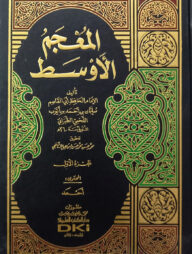 المعجم
الأوسط
تأليف
الإمام الحافظ أبي القاسم
سليمان بن أحمد بن أيوب
اللخمي الطبراني
المتوفى سنة ٣٦٠هـ
تحقيق
الجزء الأول
المحتوى
أحمد
منشورات
دار الكتب العلمية
DKi